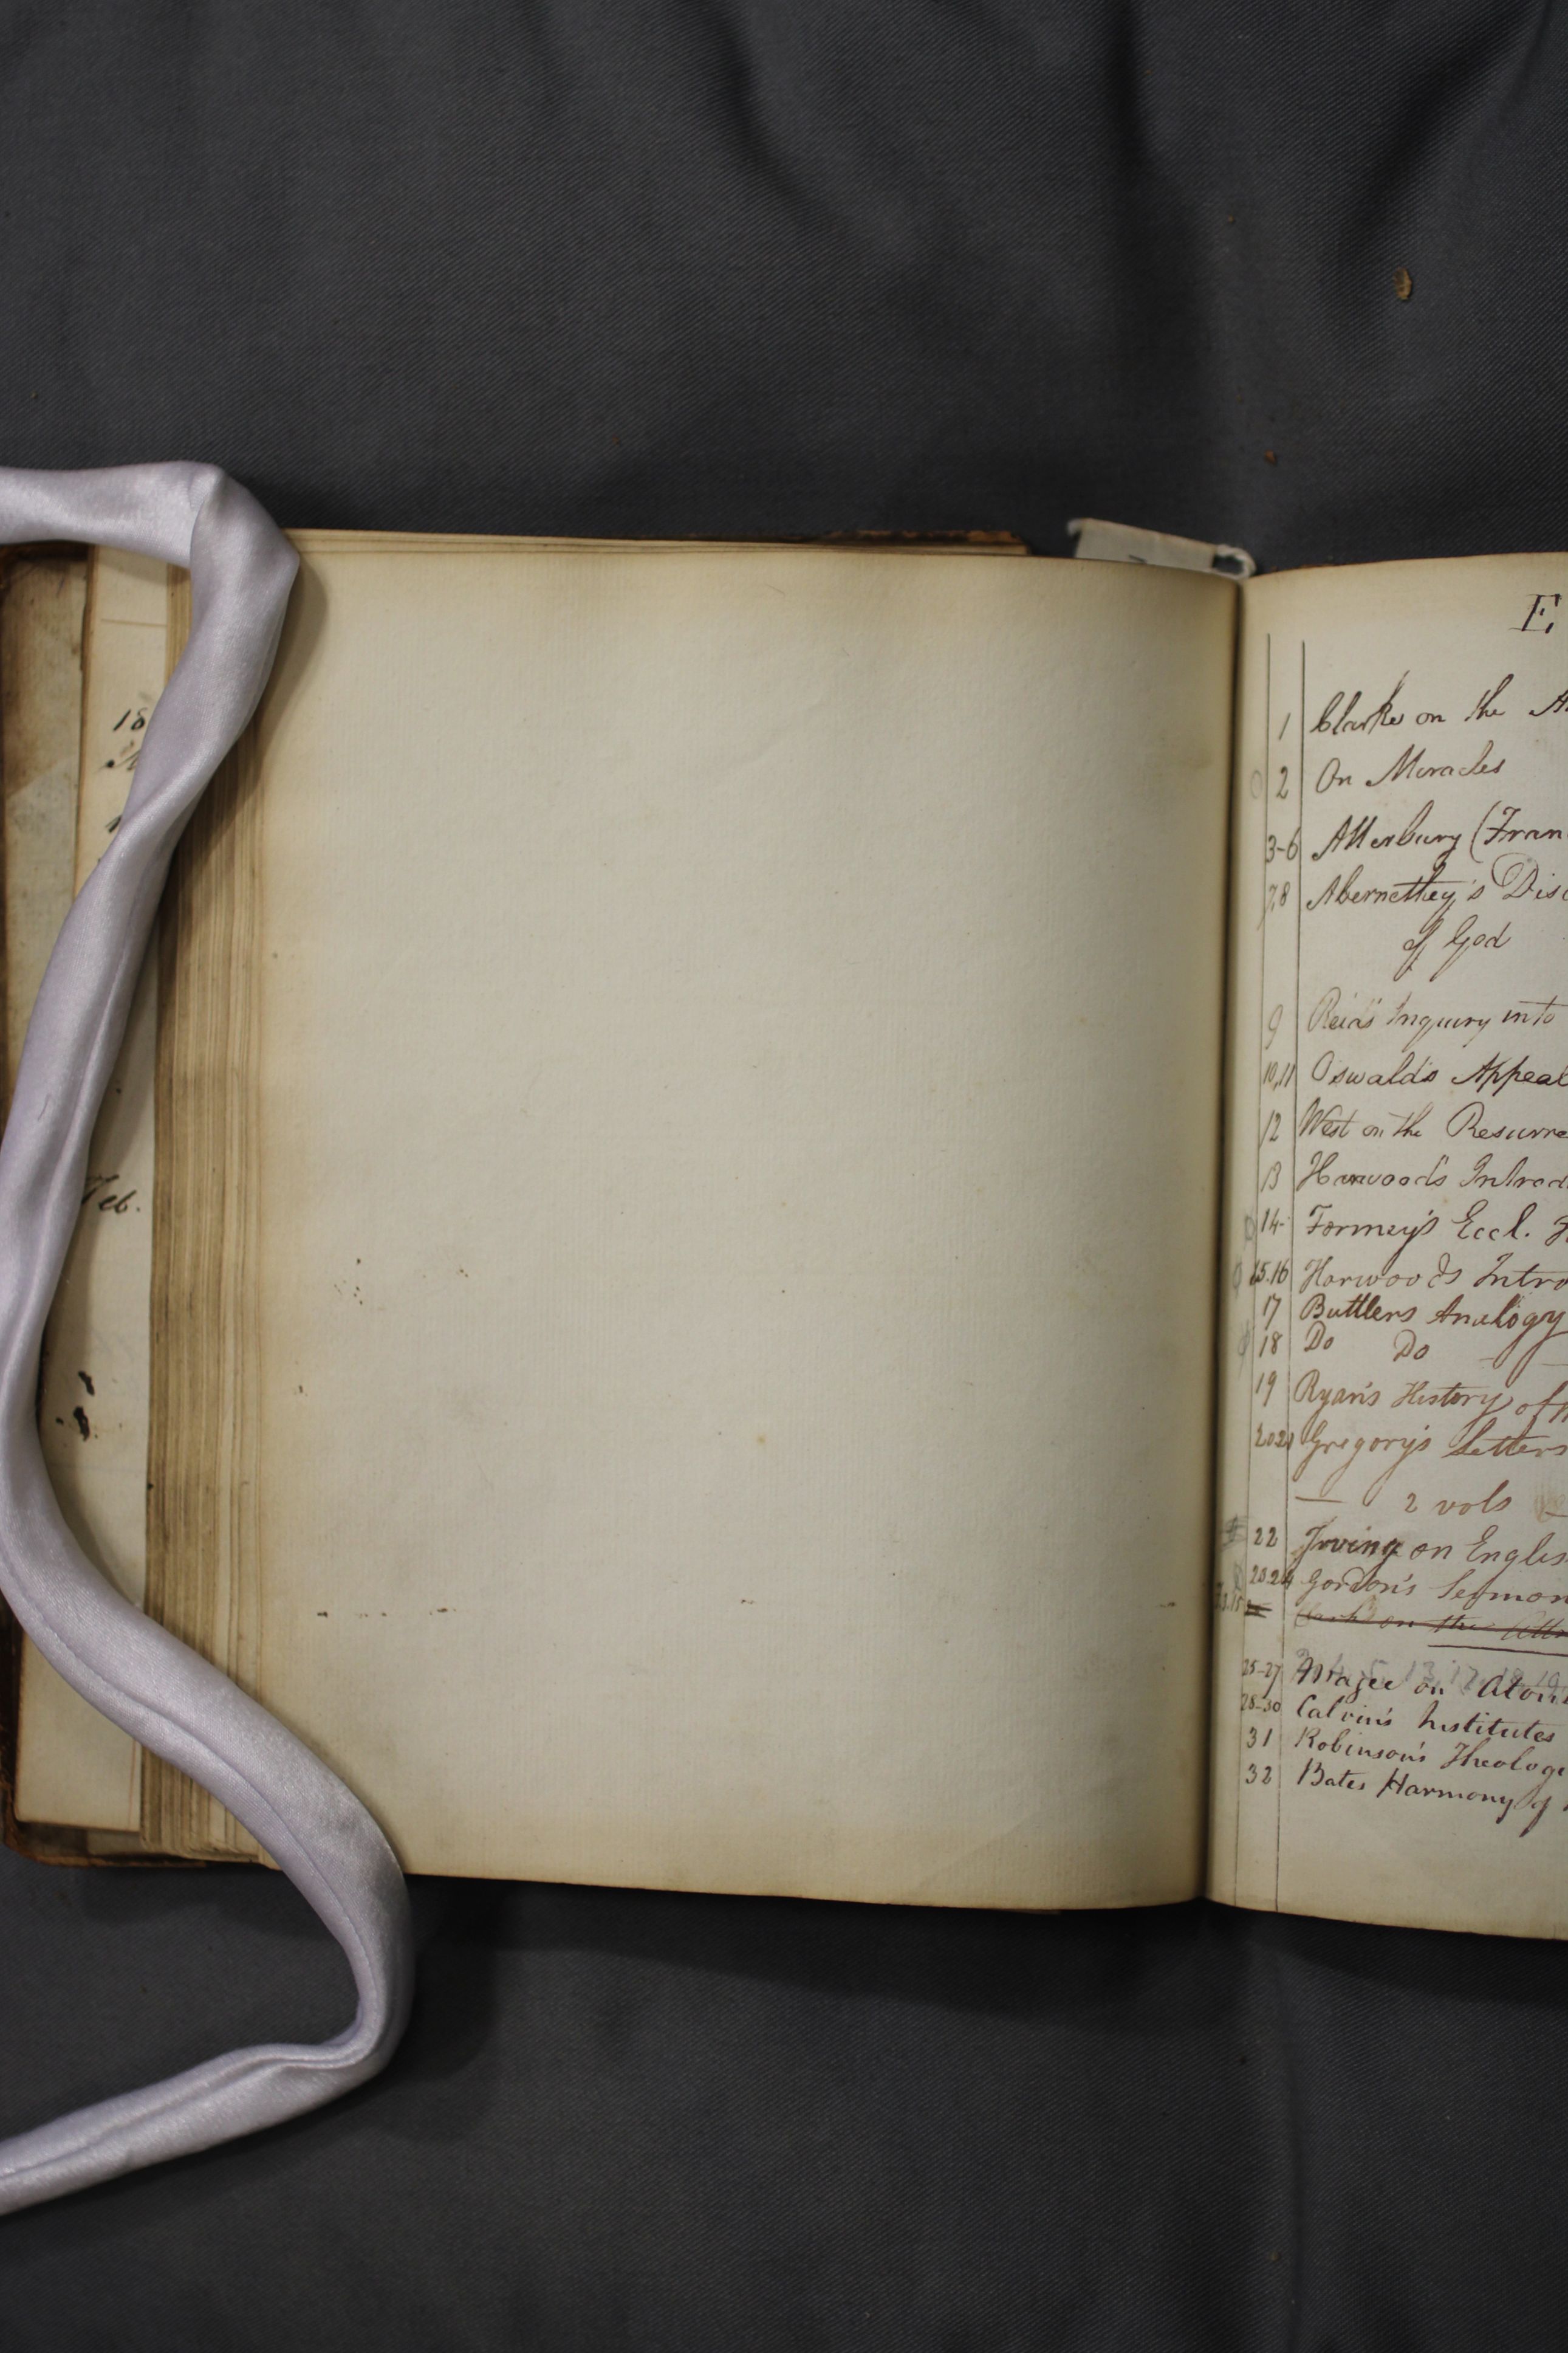 18
Feb.
E.
1 Clarke on the
2 On Miracles
3-6 Atterbury (Fran
7,8 Abernethey's Disc
of God
9 Reid's Inquiry into
10,11 Oswald's Appeal
12 West on the Resurre
13 Harwood's Introd
14 Formey's Eccl.
15.16 Harwood's Intro
17 Buttlers Analogy
18 Do Do
19 Ryan's History of
20.21 Gregory's Letters
— 2 vols
22 Irving on Englis
23.24 Gordon's Sermon
on the
25-27 Magee on Atone
28-30 Calvin's Institutes
31 Robinson's Theologi
32 Bates Harmony of